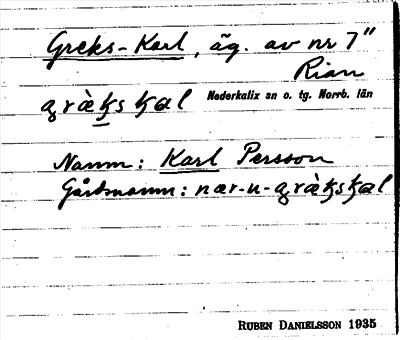 Greks-Karl, äg. av nr 7"
Rian
Nederkalix sn o. tg. Norrb. län
Namn: Karl Persson
Gårdmann:
RUBEN DANIELSSON 1935